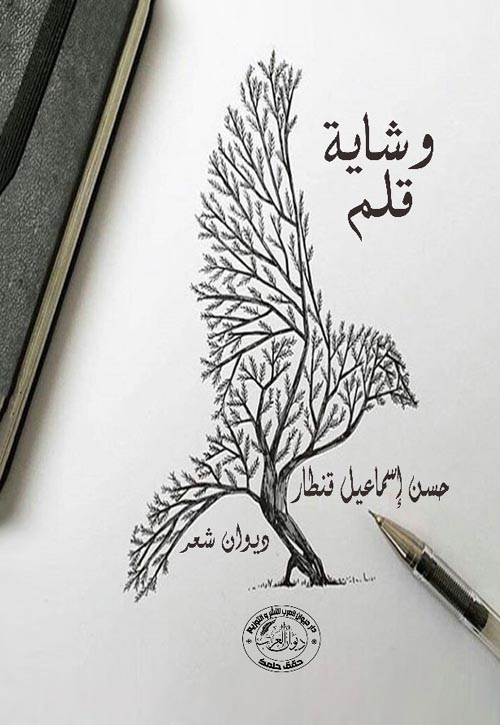 وشاية
قلم
حسن إسماعيل قنطار
ديوان شعر
دار ديوان العرب للنشر والتوزيع
ديوان العرب
حقق حلمك